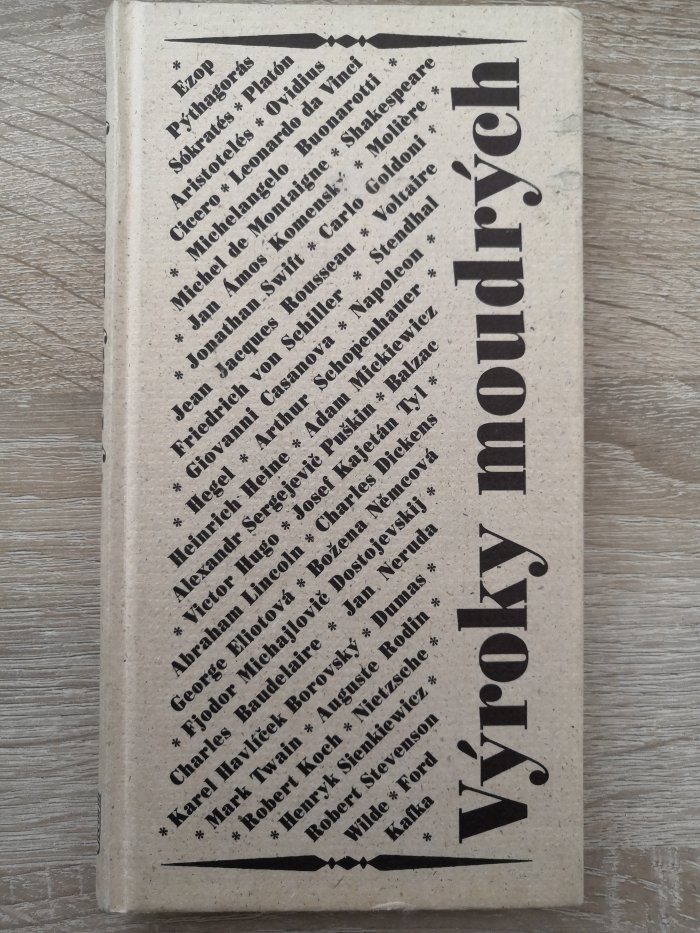 Výroky moudrých
*
Ezop
Pýthagorás
Sókratés * Platón
Aristotelés * Ovidius
Cicero * Leonardo da Vinci
* Michelangelo Buonarotti *
Michel de Montaigne * Shakespeare
* Jan Ámos Komenský * Molière *
* Jonathan Swift * Carlo Goldoni *
Jean Jacques Rousseau * Voltaire
Friedrich von Schiller * Stendhal
* Giovanni Casanova * Napoleon *
* Hegel * Arthur Schopenhauer *
Heinrich Heine * Adam Mickiewicz
Alexandr Sergejevič Puškin * Balzac
* Victor Hugo * Josef Kajetán Tyl *
Abraham Lincoln * Charles Dickens
George Eliotová * Božena Němcová
* Fjodor Michajlovič Dostojevskij *
Charles Baudelaire * Jan Neruda
* Karel Havlíček Borovský * Dumas *
* Mark Twain * Auguste Rodin *
* Robert Koch * Nietzsche *
* Henryk Sienkiewicz *
Robert Stevenson
Wilde * Ford
Kafka
*